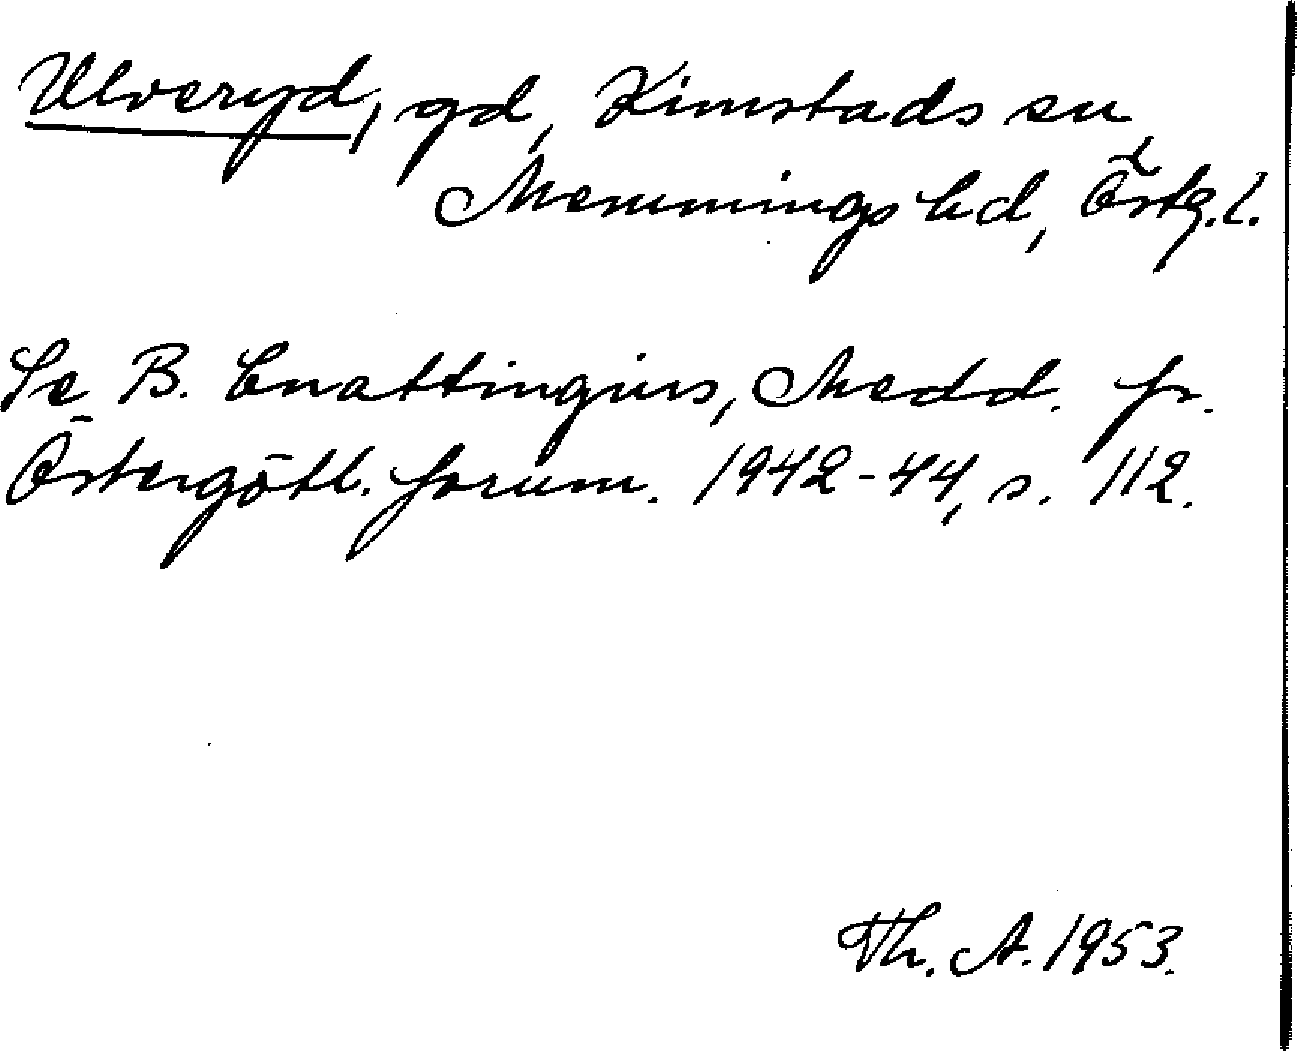 Ulveryd, gd, Kimstads sn,
Memmings hd, Östg.l.
Se B. Cnattingius, Medd. fr.
Östergötl. fornm. 1942-44, s. 112.
Th. A. 1953.